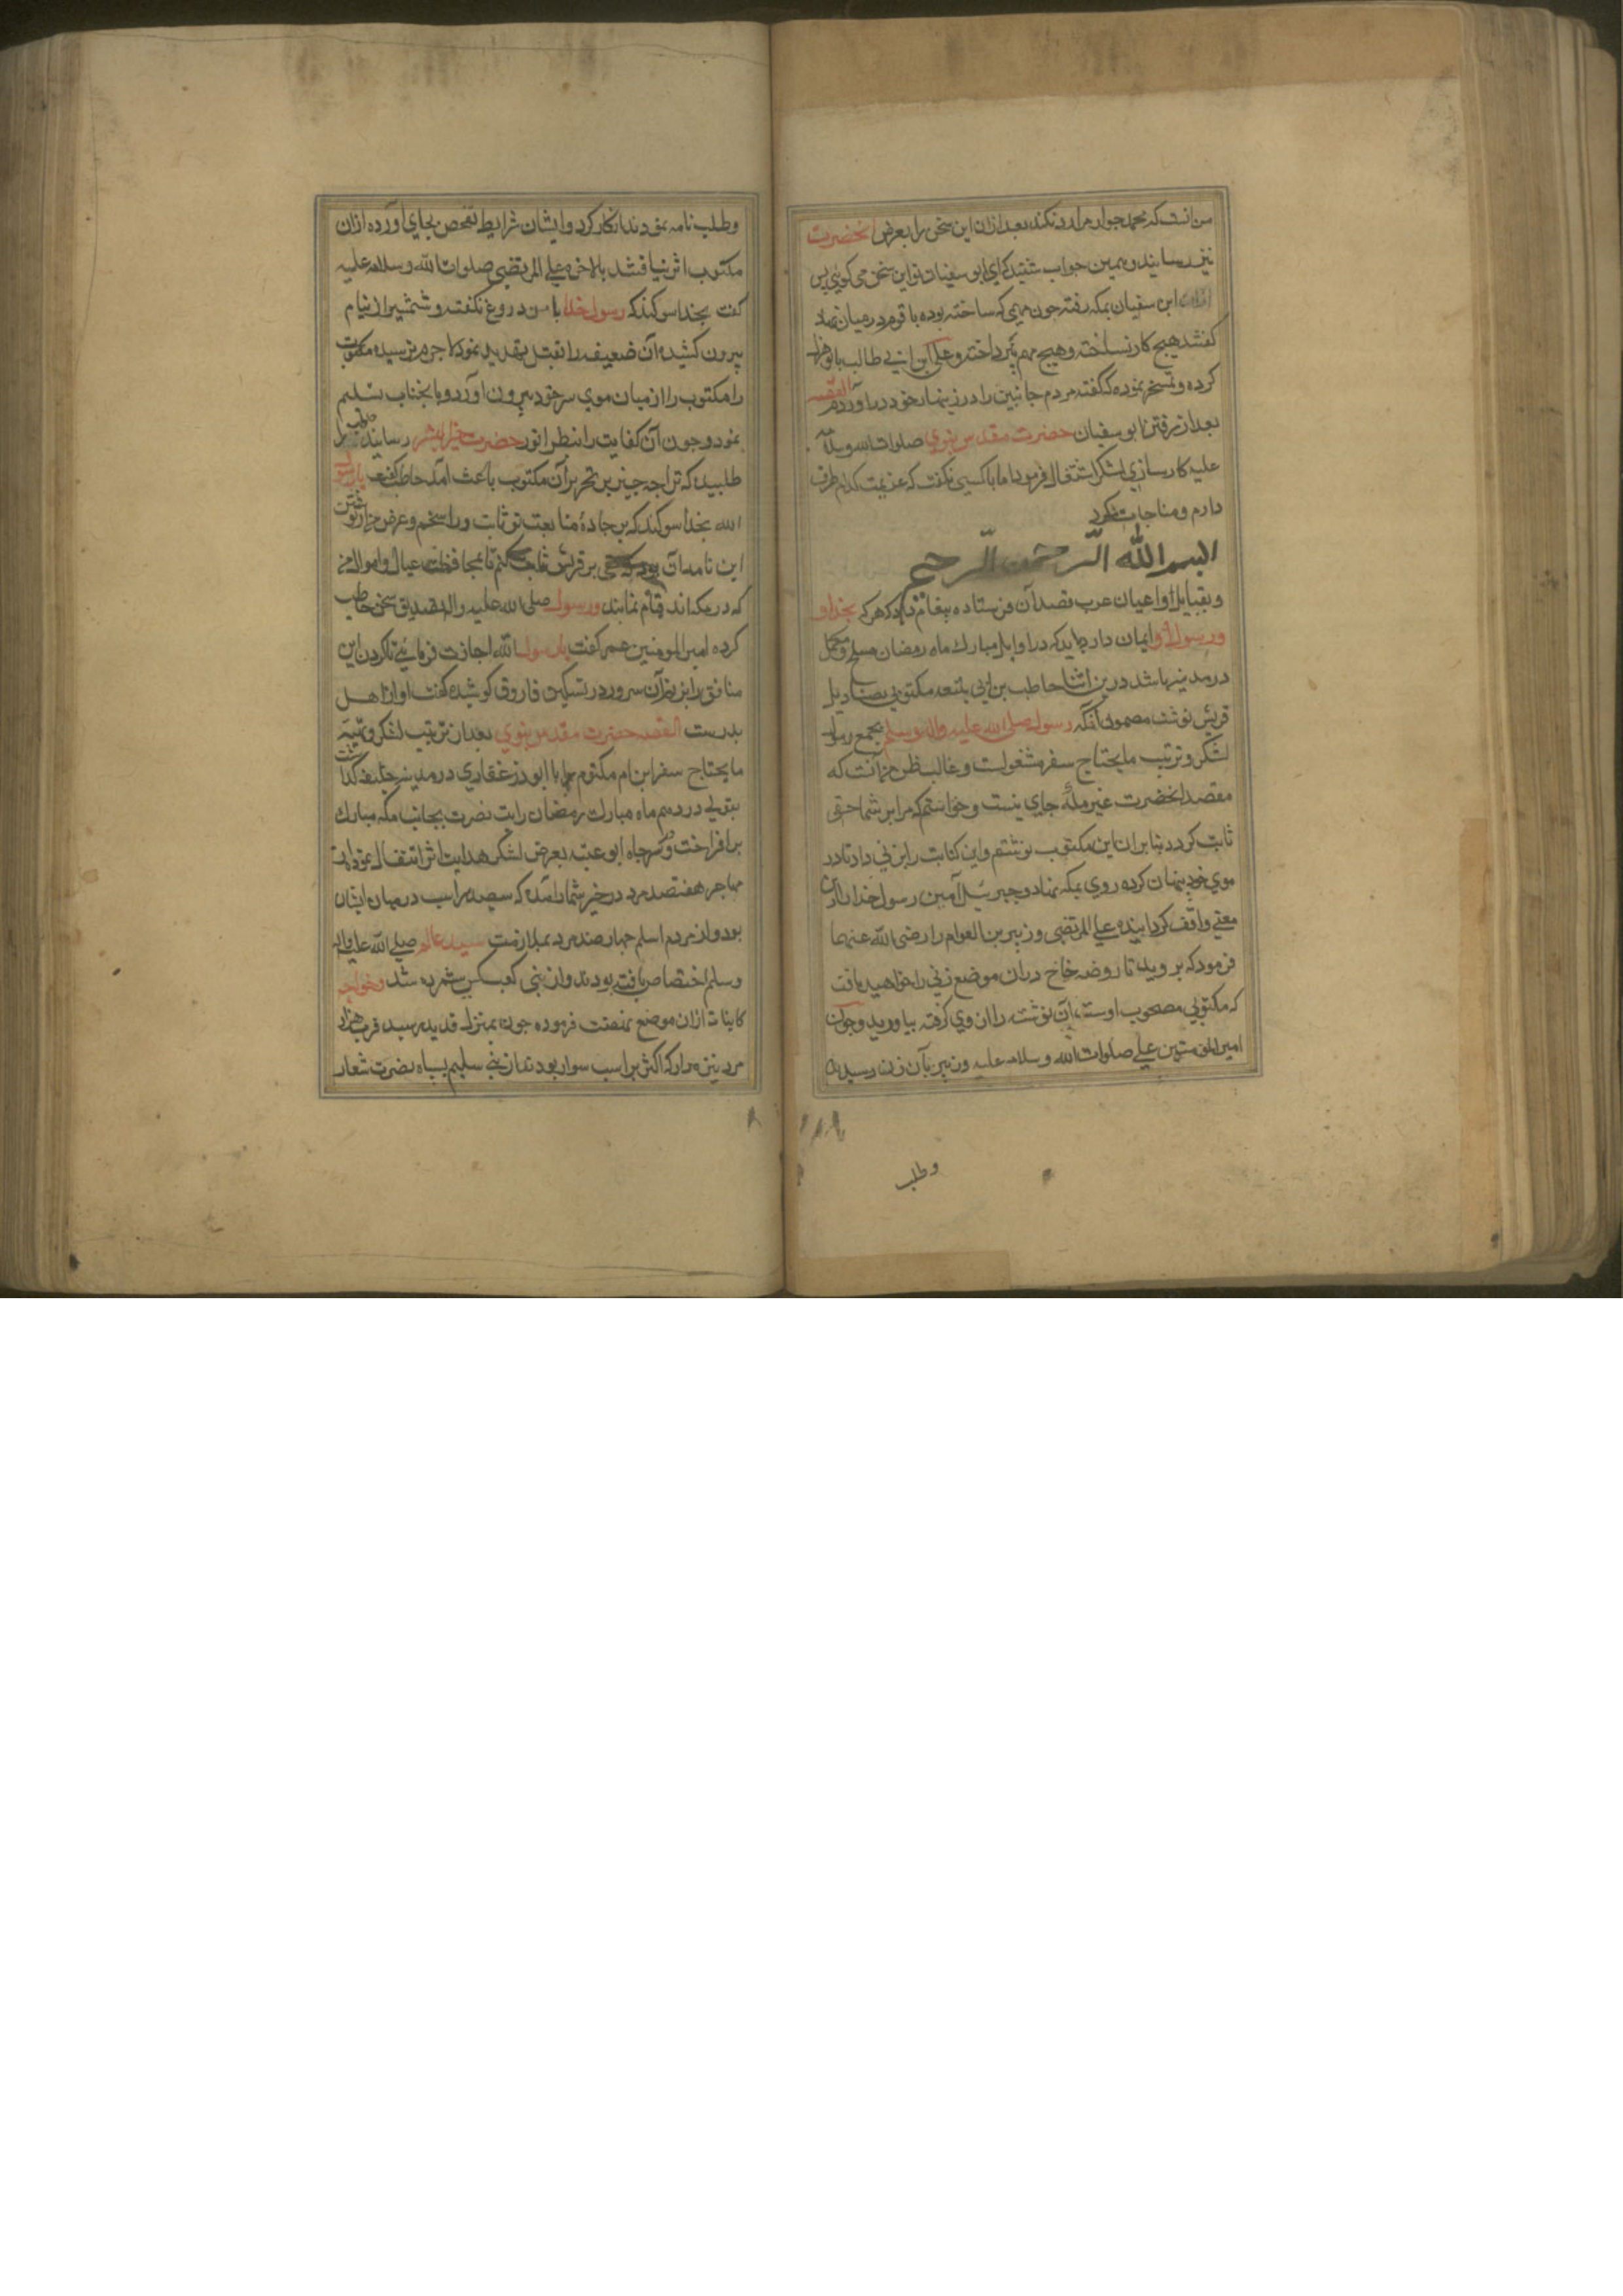 من انست که محمد جوار مرا رد نکند بعد ازان این سخن را بعرض انحضرت
نیز رسانید و همین جواب شنید که ای ابو سفیان تو این سخن می کویی پس
ازان ابن سفیان بمکه رفته جون مهمی که ساخته بوده با قوم درمیان نهاد
کفتند هیج کار نساخته و هیج مهم نپرداخته و علی ابن ابی طالب با تو هزل
کرده و تمسخر نموده که کفته مردم جانبین را در زینهار خود دراوردم القصه
بعد از رفتن ابو سفیان حضرت مقدس نبوی صلوات الله وسلامه
علیه کارسازی لشکر اشتغال فرمود اما با کسی نکفت که عزیمت کدام طرف
دارم و مناجات کرد
البسم الله الرحمن الرحیم
و بقبایل و اعیان عرب قصد آن فرستاده پیغام داد که هر که بخدا و
و رسول او ایمان دارد باید که در اوایل مبارک ماه رمضان مسلح و مکمل
در مدینه باشد درین اثنا حاطب بن ابی بلتعه مکتوبی بصنادیل
قریش نوشت مضمون آنکه رسول صلی الله علیه واله وسلم بجمع رجال
لشکر و ترتیب مایحتاج سفر مشغولست و غالب ظن من آنست که
مقصد انحضرت غیر مکه جای نیست و خواستم که مرا بر شما حقی
ثابت کردد بنا بران این مکتوب نوشتم و این کتابت را بزنی داد تا در
موی خود پنهان کرده روی بمکه نهاد و جبرئیل آمین رسول خدا را ازین
معنی واقف کردانیده علی المرتضی و زبیر بن العوام را رضی الله عنهما
فرمود که بروید تا روضه خاخ دران موضع زنی را خواهید یافت
که مکتوبی مصحوب اوست آن نوشته را از وی کرفته بیاورید و جون
امیر المؤمنین علی صلوات الله و سلامه علیه و زبیر بآن زن رسیدند
وطلب
وطلب نامه نمودند انکار کرد و ایشان شرایط تفحص بجای آورده ازان
مکتوب اثر نیافتند بالاخره علی المرتضی صلوات الله و سلامه علیه
کفت بخدا سوکند که رسول خدا با من دروغ نکفته و شمشیر از نیام
بیرون کشیده آن ضعیفه را بقتل تهدید نمود لاجرم ترسیده مکتوب
را مکتوب را از میان موی سر خود بیرون اورد و بانجناب تسلیم
نمود و جون آن کفایت را بنظر انور حضرت خیر البشر رسانید حاطب را
طلبیده که ترا جه جیز بر تحریر آن مکتوب باعث آمد حاطب کفت یا رسول
الله بخدا سوکند که بر جادهٔ متابعت تو ثابت و راسخم و غرض من از نوشتن
این نامه آن بود که حقی بر قریش ثابت کنم تا بمحافظت عیال و اموال من
که در مکه اند قیام نمایند و رسول صلی الله علیه و اله تصدیق سخن حاطب
کرده امیر المومنین عمر کفت یا رسول الله اجازت فرمائی تا کردن این
منافق را بزنم آن سرور در تسکین فاروق کوشیده کفت او از اهل
بدرست القصه حضرت مقدس نبوی بعد از ترتیب لشکر و تهیه
مایحتاج سفر ابن ام مکتوم را با ابوذر غفاری در مدینه خلیفه کذاشت
بقولی در دهم ماه مبارک رمضان رایت نصرت بجانب مکه مبارک
برافراخت و بر سر جاه ابو عتبه بعرض لشکر هدایت اثر اشتغال نمود از
مهاجر هفتصد مرد در حیز شمار آمد که سیصد اسب در میان ایشان
بود و از مردم اسلم جهار صد مرد بملازمت سید عالم صلی الله علیه واله
وسلم اختصاص یافته بودند و از بنی کعب شد و خواجه
کاینات ازان موضع نهضت فرموده جون بمنزل قدید رسید قریب هزار
مرد نیزه دار که اکثر بر اسب سوار بودند از بنی سلیم بسپاه نصرت شعار